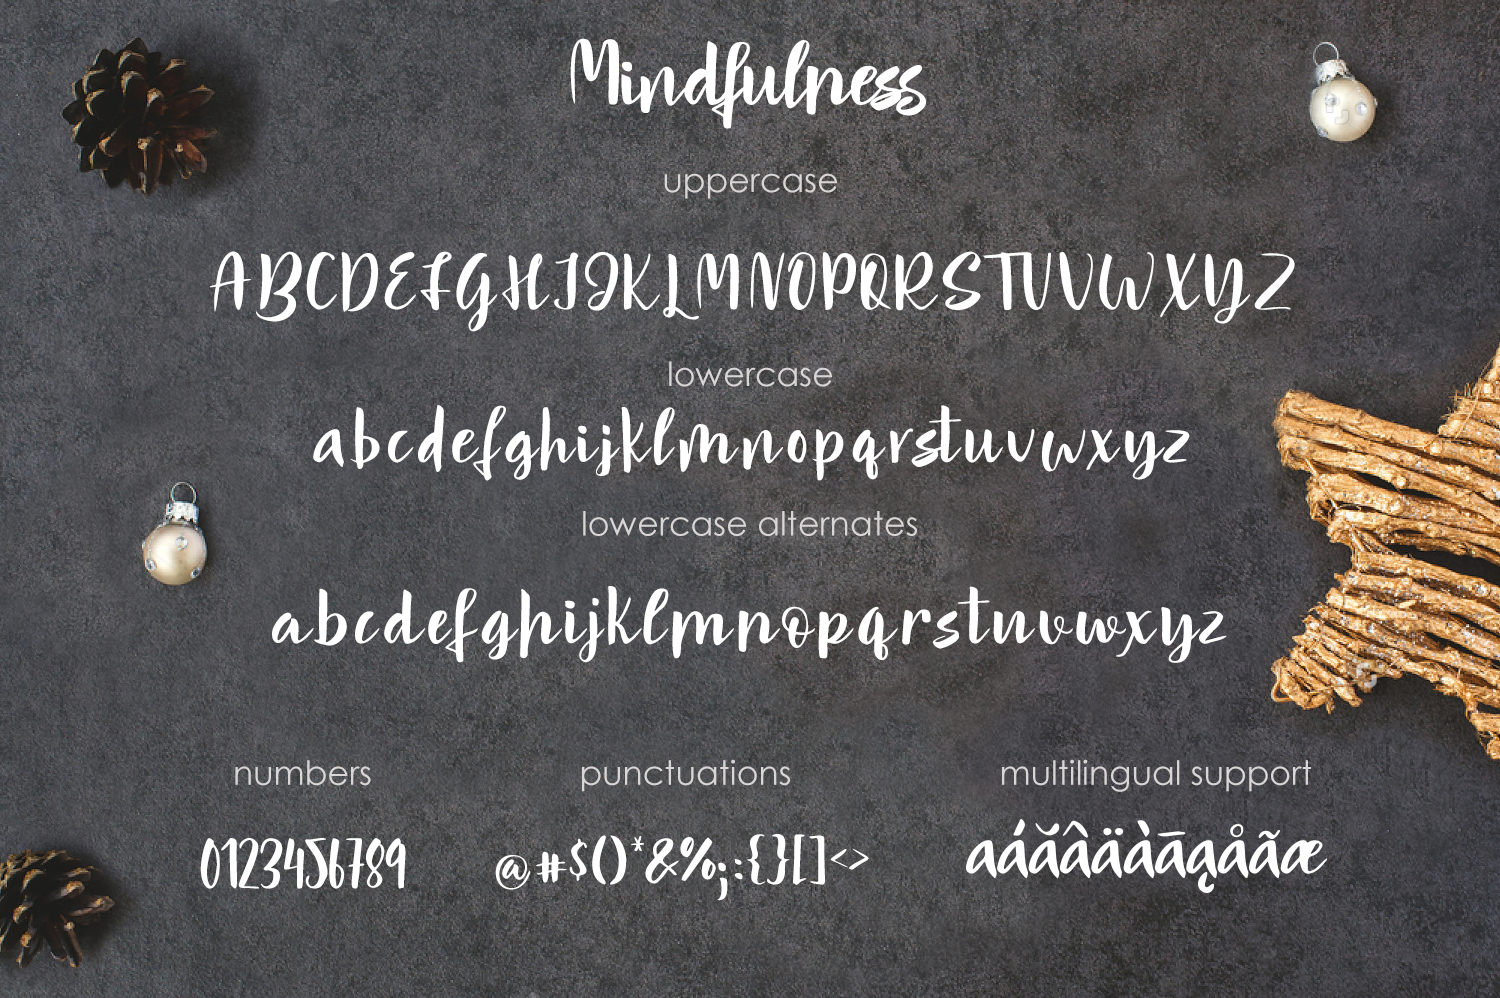 Mindfulness
uppercase
ABCDEFGHIJKLMNOPQRSTUVWXYZ
lowercase
abcdefghijklmnopqrstuvwxyz
lowercase alternates
abcdefghijklmnopqrstuvwxyz
numbers punctuations multilingual support
0123456789 @#$()*&%;:{}[]<> aáăâäàāąåãæ